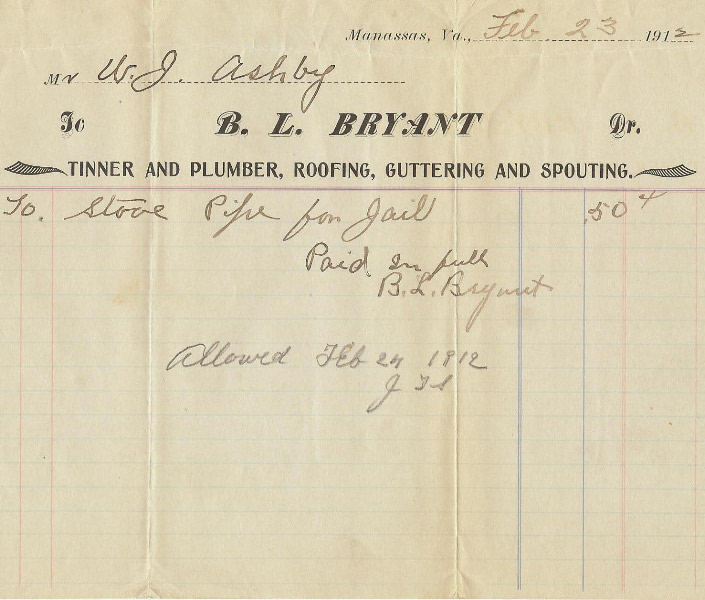 Manassas, Va., Feb. 23 1912
Mr W. J. Ashby
To B. L. BRYANT Dr.
TINNER AND PLUMBER, ROOFING, GUTTERING AND SPOUTING.
To. Stove Pipe for Jail .50
Paid in full
B. L. Bryant
Allowed Feb 24 1912
J